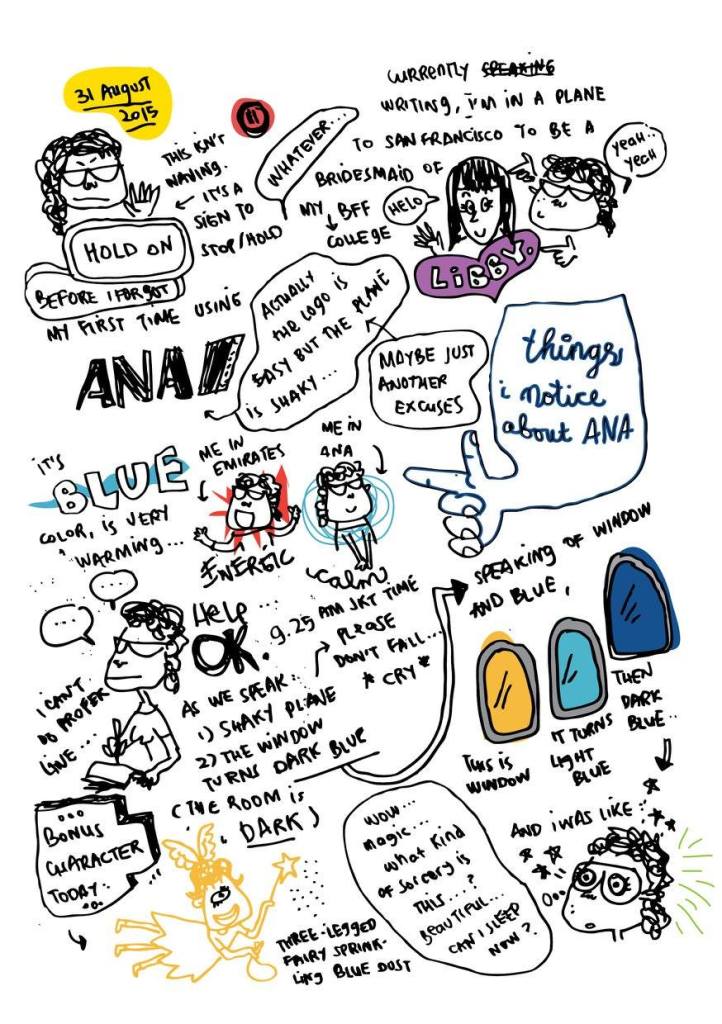 31 AUGUST
2015
CURRENTLY SPEAKING
WRITING, I'M IN A PLANE
TO SAN FRANCISCO TO BE A
BRIDESMAID OF
MY BFF
COLLEGE
HELO
YEAH..
YEAH
LIBBY.
THIS ISN'T
WAVING.
IT'S A
SIGN TO
STOP/HOLD
WHATEVER...
HOLD ON
BEFORE I FORGOT
MY FIRST TIME USING
ANA
ACTUALLY
THE LOGO IS
EASY BUT THE PLANE
IS SHAKY...
MAYBE JUST
ANOTHER
EXCUSES
things
i notice
about ANA
IT'S
BLUE
COLOR, IS VERY
WARMING...
ME IN
EMIRATES
ENERGIC
ME IN
ANA
calm
SPEAKING OF WINDOW
AND BLUE,
THIS IS
WINDOW
IT TURNS
LIGHT
BLUE
THEN
DARK
BLUE..
...
...
I CAN'T
DO PROPER
LINE...
HELP...
OK.
9.25 AM JKT TIME
PLEASE
DON'T FALL...
*CRY*
AS WE SPEAK:
1) SHAKY PLANE
2) THE WINDOW
TURNS DARK BLUE
(THE ROOM IS
DARK)
AND I WAS LIKE:
WOW...
magic...
what kind
of sorcery is
THIS...?
BEAUTIFUL...
CAN I SLEEP
NOW?
...
BONUS
CHARACTER
TODAY:
THREE-LEGGED
FAIRY SPRINK-
LING BLUE DUST